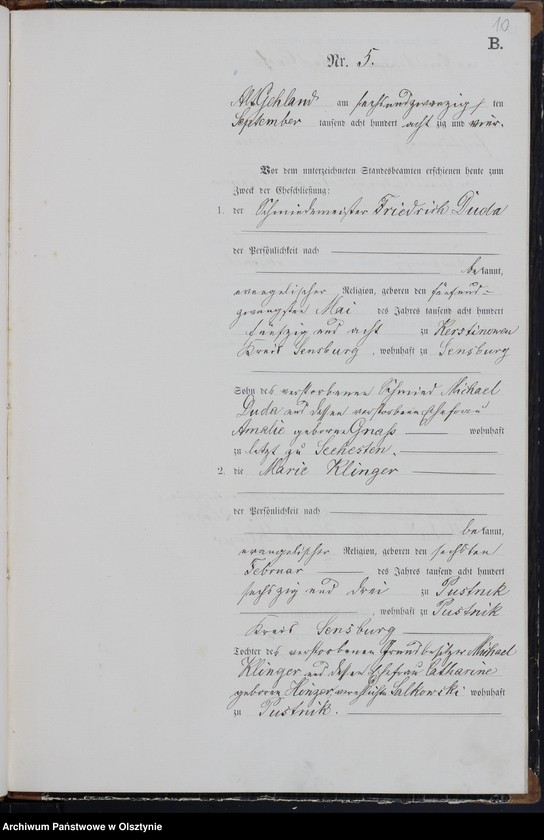 10
B.
Nr. 5.
Alt Gehland am sechsundzwanzig ten
September tausend acht hundert acht zig und vier.
Vor dem unterzeichneten Standesbeamten erschienen heute zum
Zweck der Eheschließung:
1. der Schmiedemeister Friedrich Duda
der Persönlichkeit nach
bekannt,
evangelischer Religion, geboren den fünfund-
zwanzigsten Mai des Jahres tausend acht hundert
fünfzig und acht zu Kerstinowen
Kreis Sensburg, wohnhaft zu Sensburg
Sohn des verstorbenen Schmied Michael
Duda und dessen verstorbenen Ehefrau
Amalie geborne Gnass wohnhaft
zu letzt zu Seehesten.
2. die Marie Klinger
der Persönlichkeit nach
bekannt,
evangelischer Religion, geboren den sechsten
Februar des Jahres tausend acht hundert
sechszig und drei zu Pustnik
, wohnhaft zu Pustnik
Kreis Sensburg
Tochter des verstorbenen Grundbesitzer Michael
Klinger und dessen Ehefrau Catharine
geboren Salkowski wohnhaft
zu Pustnik.
Archiwum Państwowe w Olsztynie